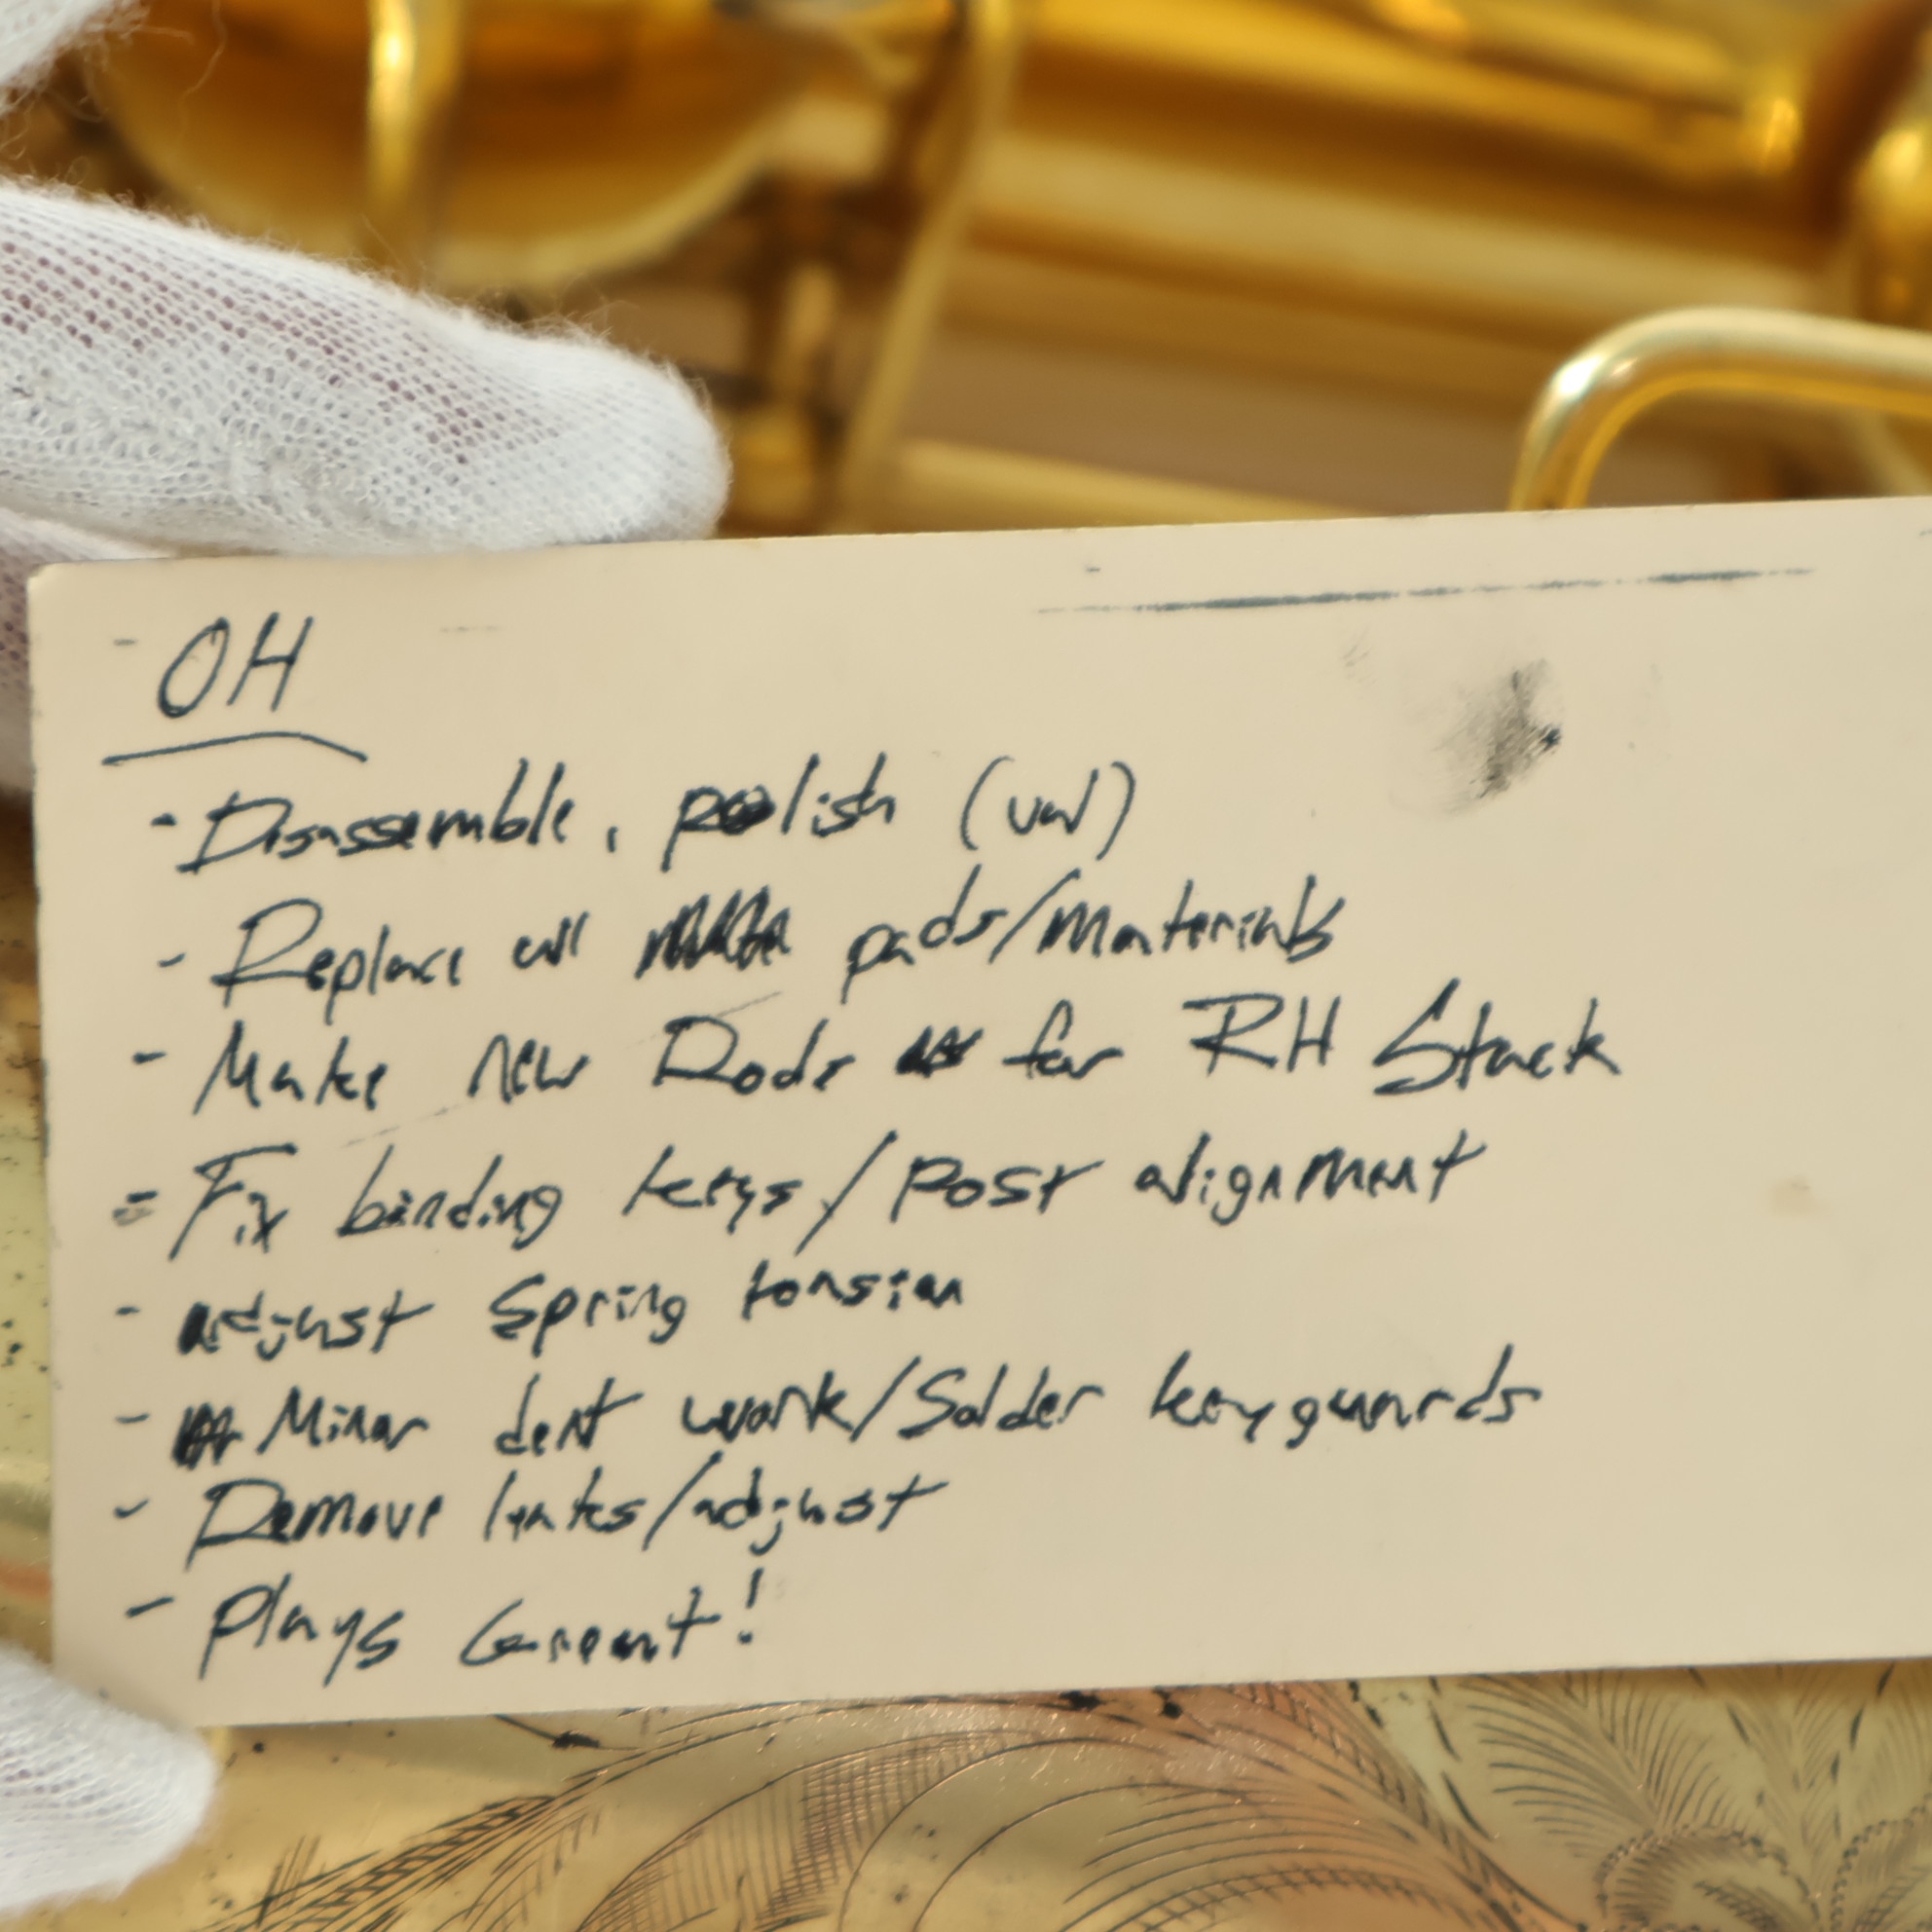 OH
- Disassemble, polish (uw)
- Replace all pads/materials
- Make new Rods for RH Stack
- Fix binding keys/Post alignment
- adjust Spring tension
- Minor dent work/Solder keyguards
- Remove leaks/adjust
- Plays Great!